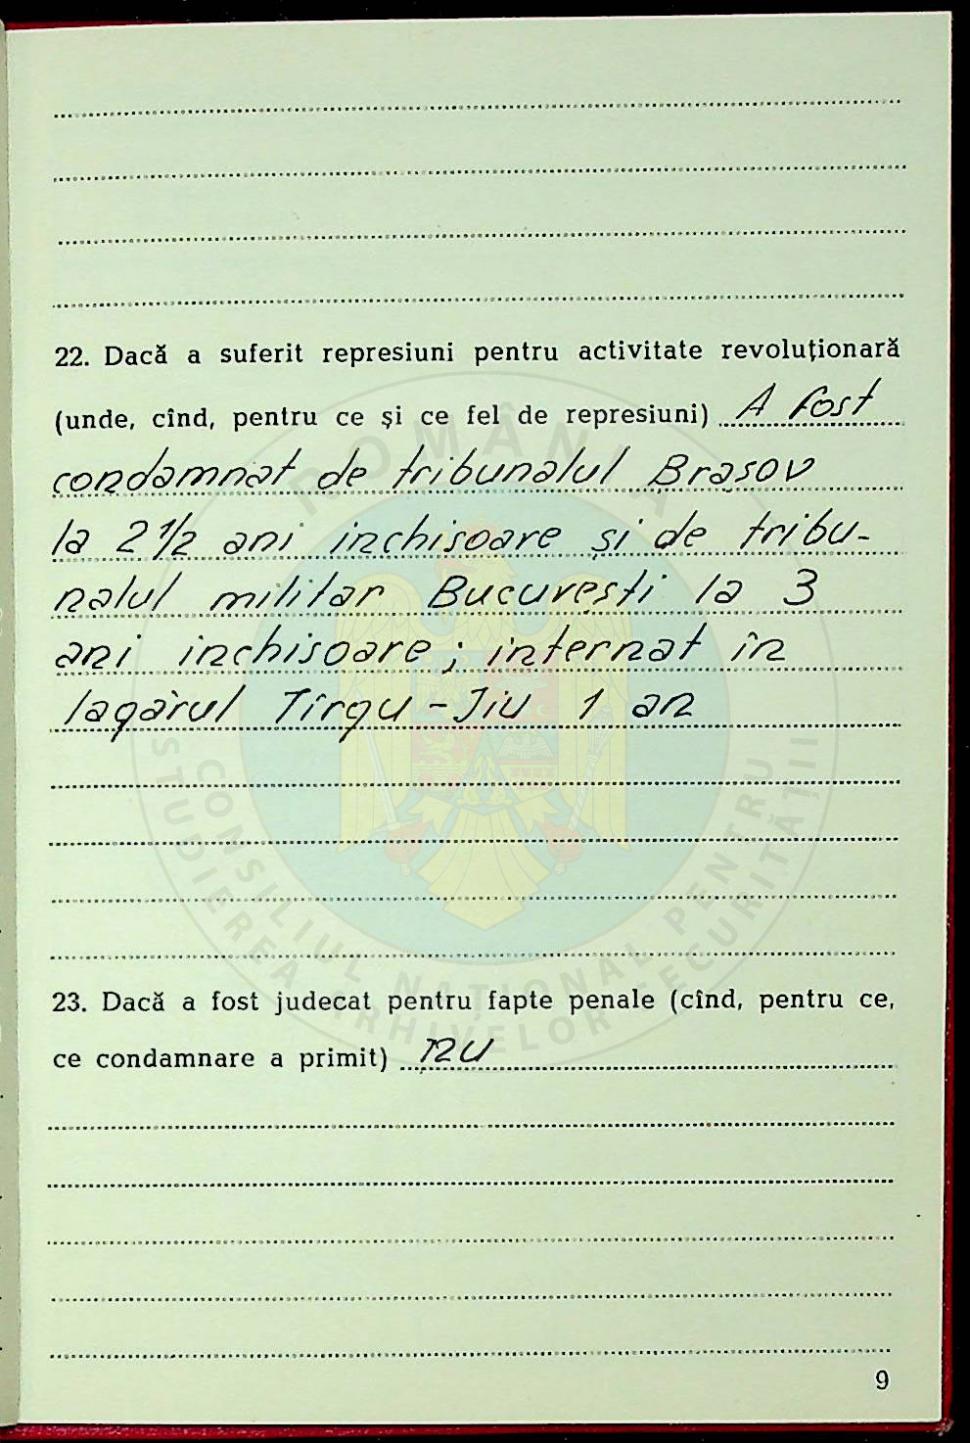 22. Dacă a suferit represiuni pentru activitate revoluționară
(unde, cînd, pentru ce și ce fel de represiuni) A fost
condamnat de tribunalul Brașov
la 2 1/2 ani inchisoare și de tribu-
nalul militar București la 3
ani inchisoare; internat în
lagărul Tîrgu-Jiu 1 an
23. Dacă a fost judecat pentru fapte penale (cînd, pentru ce,
ce condamnare a primit) nu
9
ROMÂNIA
CONSILIUL NAȚIONAL PENTRU
STUDIEREA ARHIVELOR SECURITĂȚII